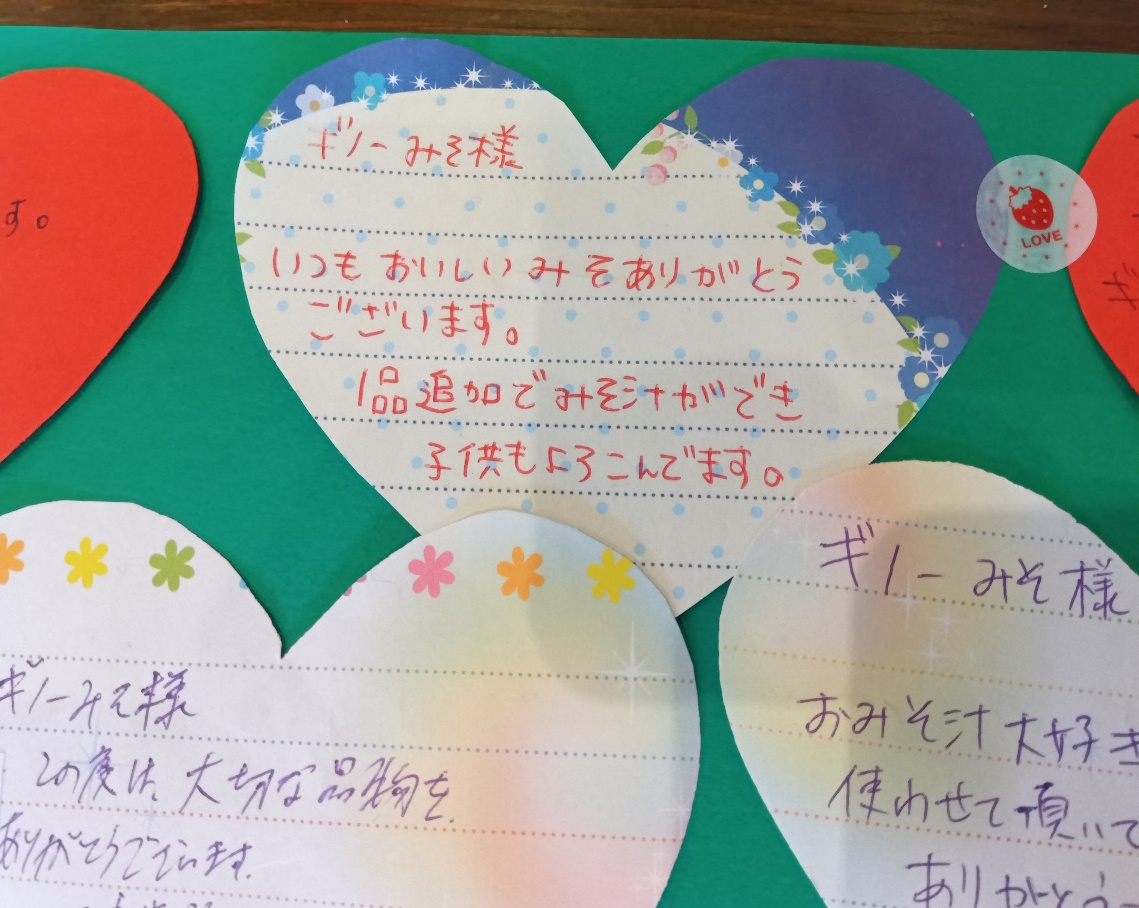 す。
ギノーみそ様
いつもおいしいみそありがとう
ございます。
1品追加でみそ汁ができ
子供もよろこんでます。
LOVE
ギ
ギノーみそ様
この度は、大切な品物を
ありがとうございます。
ギノーみそ様
おみそ汁大好き
使わせて頂いて
ありがとう